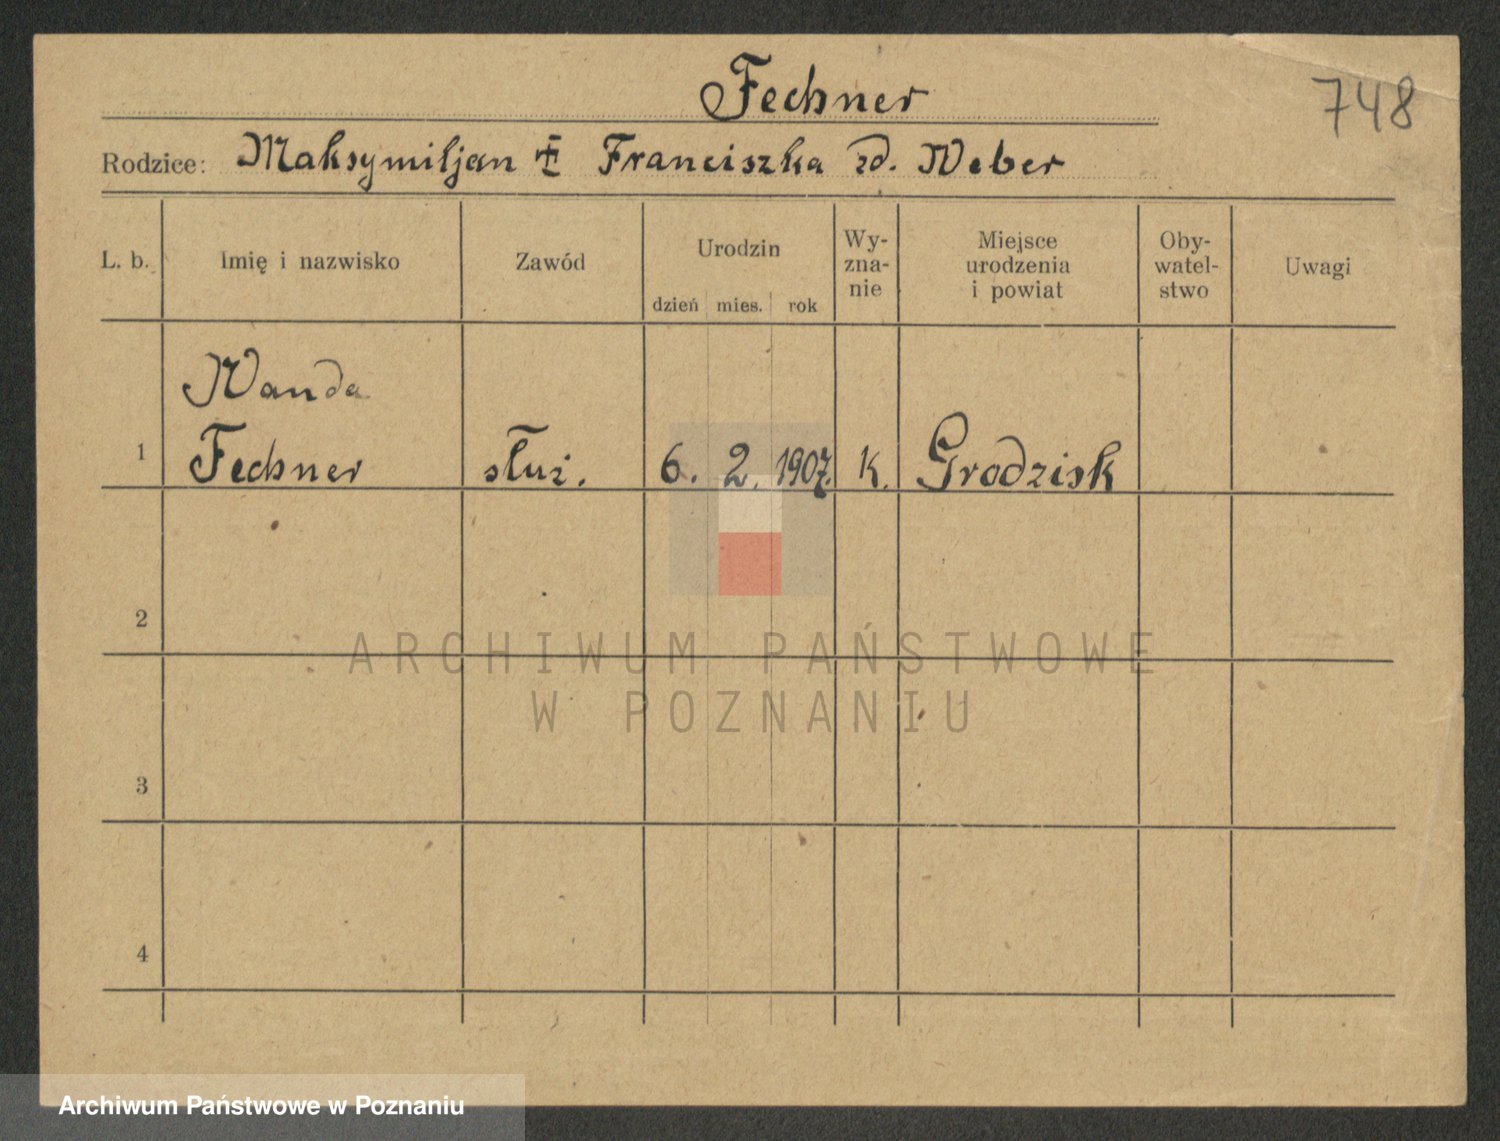 Fechner
748
Rodzice: Maksymiljan ‡ Franciszka zd. Weber
L. b. Imię i nazwisko Zawód Urodzin dzień mies. rok Wy-zna-nie Miejsce urodzenia i powiat Oby-watel-stwo Uwagi
Wanda
1 Fechner służ. 6. 2. 1907. k. Grodzisk
2
3
4
ARCHIWUM PAŃSTWOWE
W POZNANIU
Archiwum Państwowe w Poznaniu